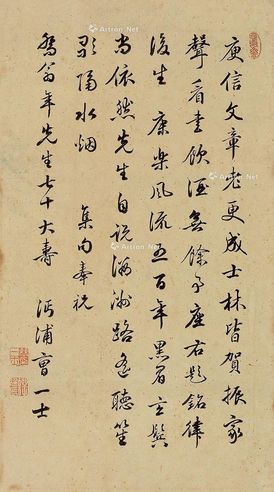 庾信文章老更成士林皆賀振家
聲看書飲酒無餘事座右題銘律
後生 康樂風流五百年黑眉玄鬢
尚依然先生自說瀛洲路遙聽笙
歌隔水烟 集句奉祝
翁年先生七十大壽 浦曹一士
Artron.Net